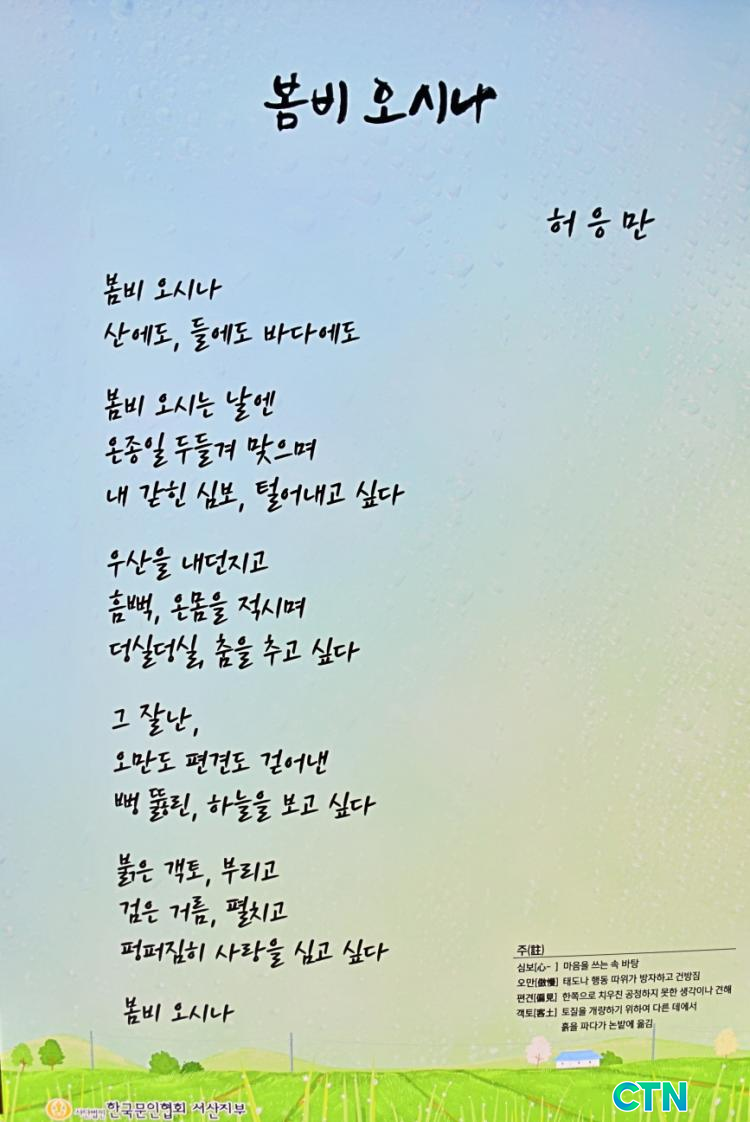 봄비 오시나
허응만
봄비 오시나
산에도, 들에도 바다에도
봄비 오시는 날엔
온종일 두들겨 맞으며
내 갇힌 심보, 털어내고 싶다
우산을 내던지고
흠뻑, 온몸을 적시며
덩실덩실, 춤을 추고 싶다
그 잘난,
오만도 편견도 걷어낸
뻥 뚫린, 하늘을 보고 싶다
붉은 객토, 부리고
검은 거름, 펼치고
펑퍼짐히 사랑을 심고 싶다
봄비 오시나
주(註)
심보[心- ] 마음을 쓰는 속 바탕
오만[傲慢] 태도나 행동 따위가 방자하고 건방짐
편견[偏見] 한쪽으로 치우친 공정하지 못한 생각이나 견해
객토[客土] 토질을 개량하기 위하여 다른 데에서
흙을 파다가 논밭에 옮김
사단법인 한국문인협회 서산지부
CTN